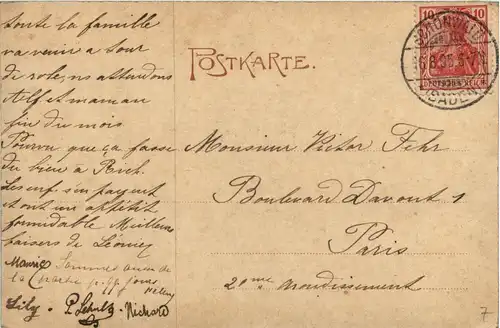 toute la famille
va venir a tour
de role, ns attendons
Alf et maman
fin du mois
Pourvu que ça fasse
du bien à Rich.
Les enf s'en payent
et ont une appétit
formidable Meilleurs
baisers de Léonie
Maurice Sommes aussi de
la partie jours
Lily. P. Schultz Richard
POSTKARTE.
10 10
SCHÖNWALD
(BADEN)
DEUTSCHES REICH
Monsieur Victor Fehr
Boulevard Davout 1
Paris
20me Arrondissement
7